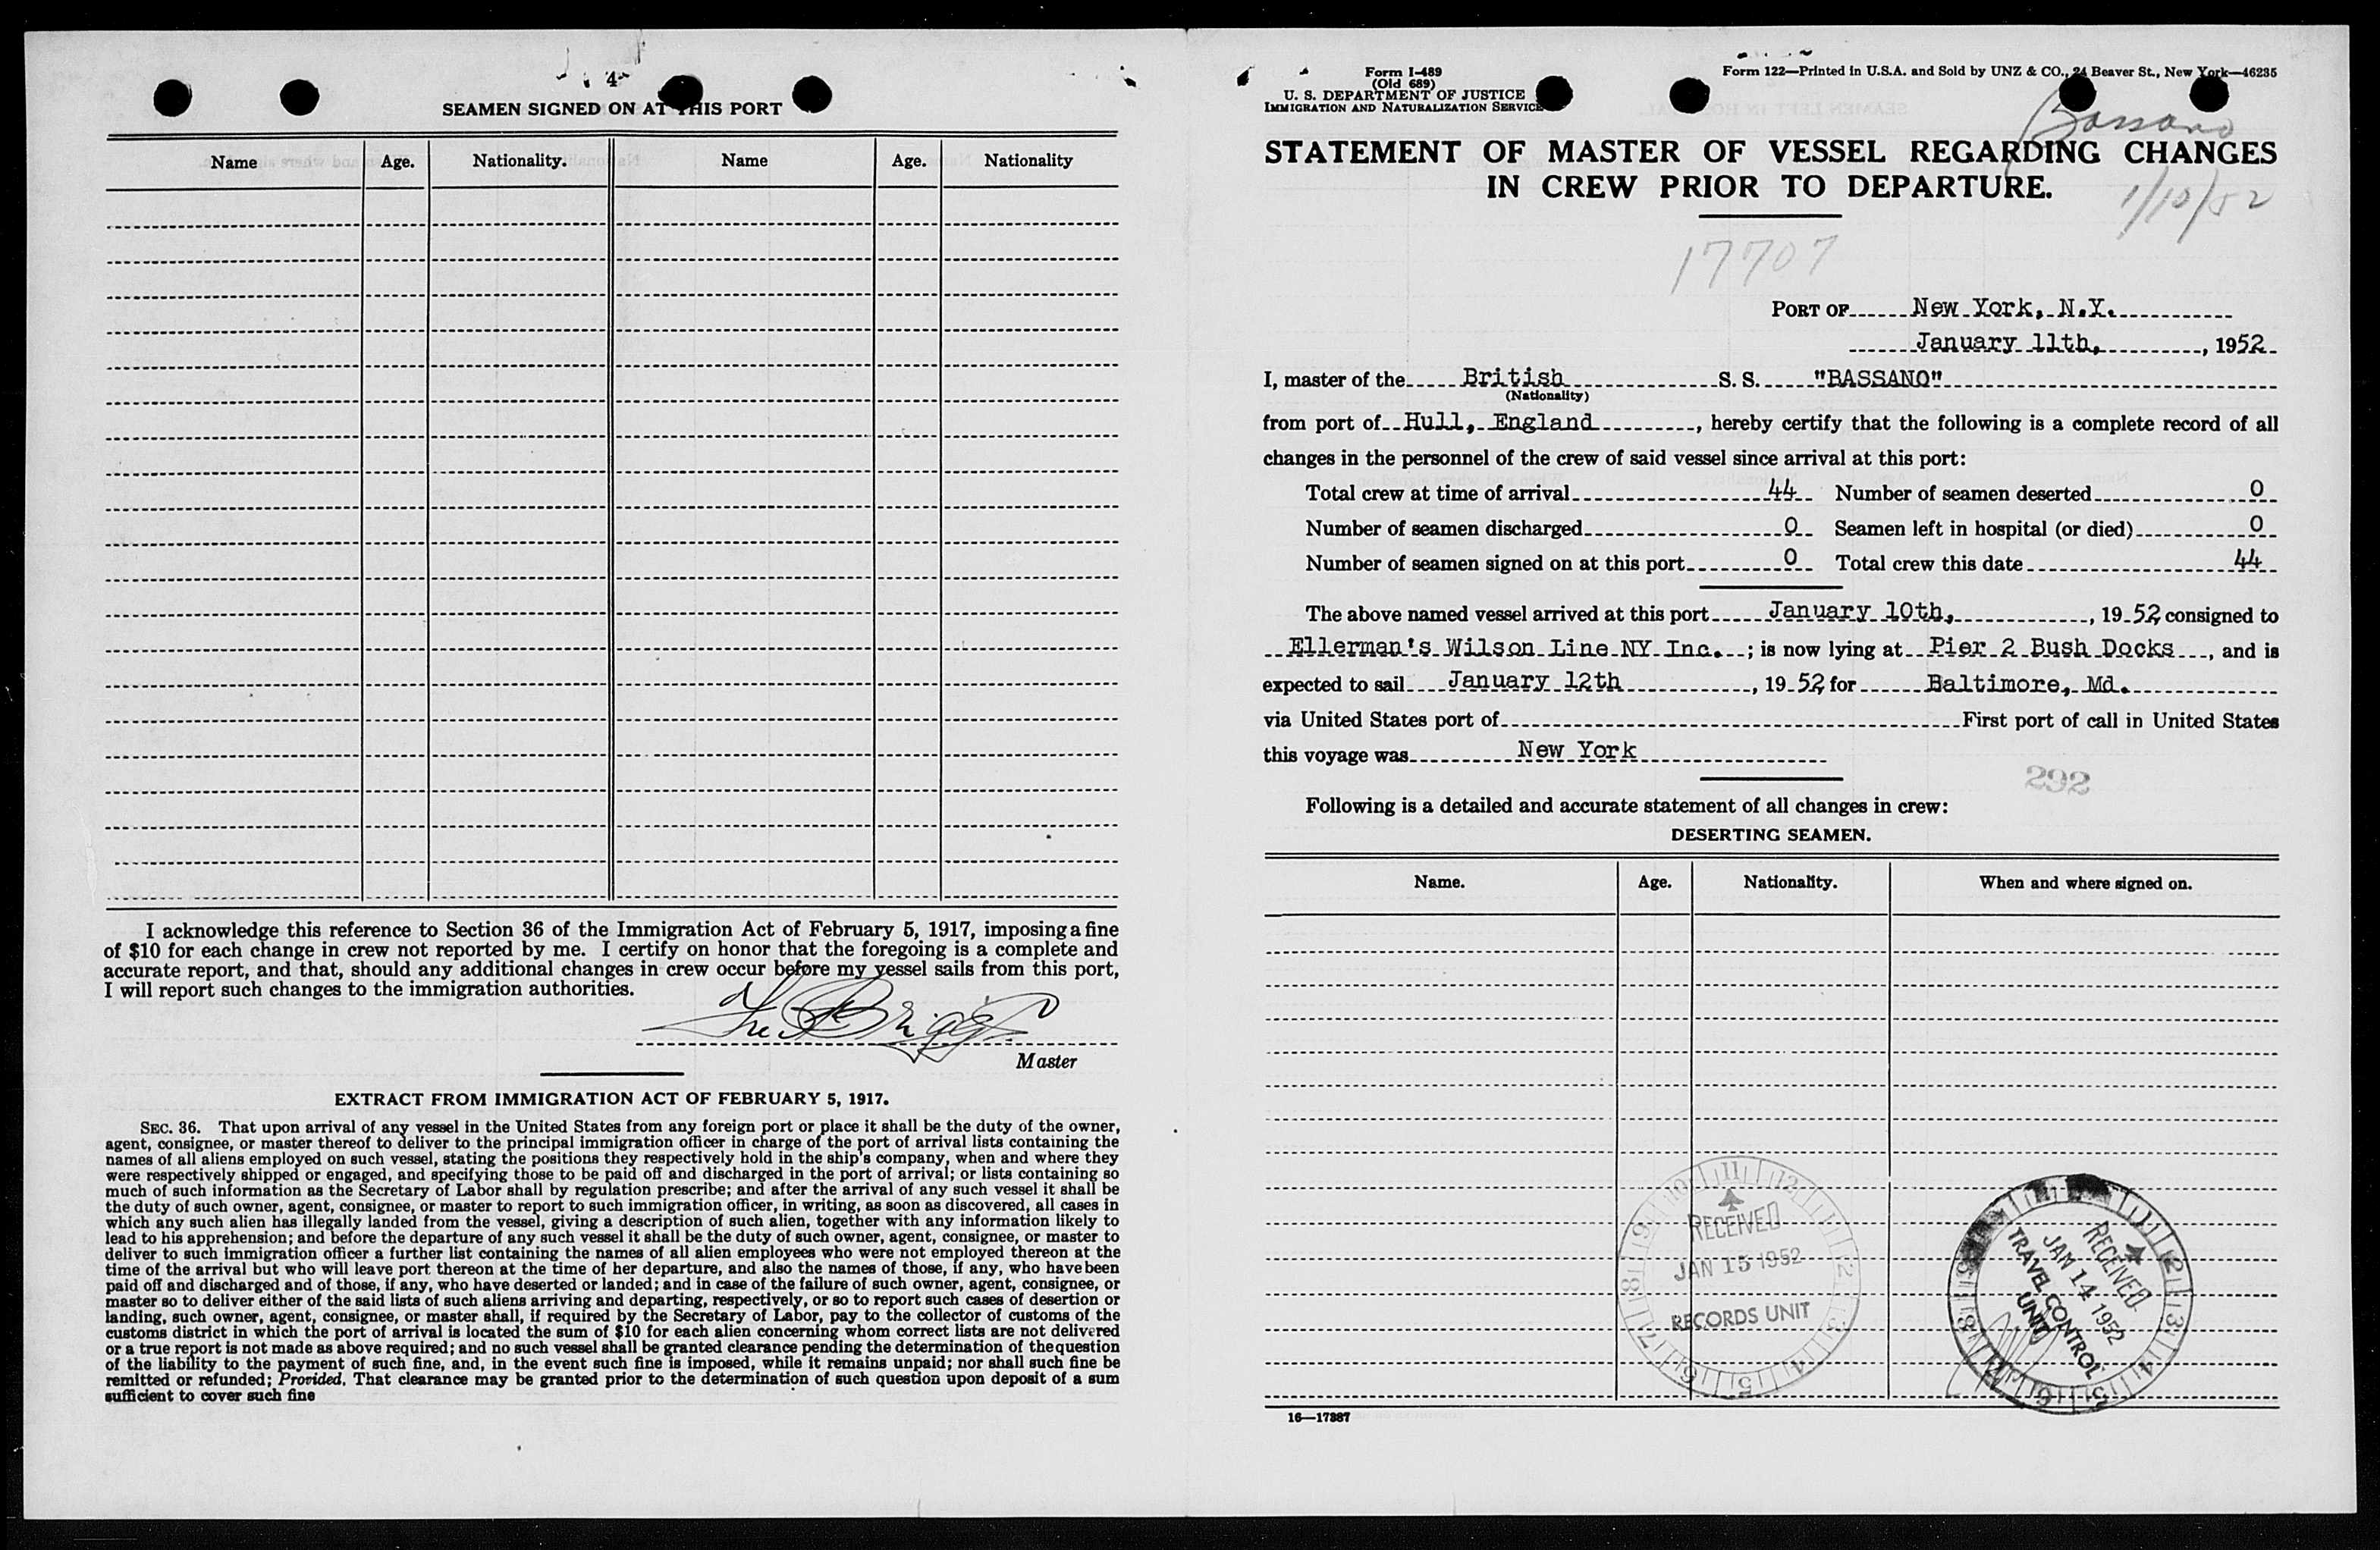 4
SEAMEN SIGNED ON AT THIS PORT
Name Age. Nationality. Name Age. Nationality
I acknowledge this reference to Section 36 of the Immigration Act of February 5, 1917, imposing a fine
of $10 for each change in crew not reported by me. I certify on honor that the foregoing is a complete and
accurate report, and that, should any additional changes in crew occur before my vessel sails from this port,
I will report such changes to the immigration authorities.
Master
EXTRACT FROM IMMIGRATION ACT OF FEBRUARY 5, 1917.
SEC. 36. That upon arrival of any vessel in the United States from any foreign port or place it shall be the duty of the owner,
agent, consignee, or master thereof to deliver to the principal immigration officer in charge of the port of arrival lists containing the
names of all aliens employed on such vessel, stating the positions they respectively hold in the ship's company, when and where they
were respectively shipped or engaged, and specifying those to be paid off and discharged in the port of arrival; or lists containing so
much of such information as the Secretary of Labor shall by regulation prescribe; and after the arrival of any such vessel it shall be
the duty of such owner, agent, consignee, or master to report to such immigration officer, in writing, as soon as discovered, all cases in
which any such alien has illegally landed from the vessel, giving a description of such alien, together with any information likely to
lead to his apprehension; and before the departure of any such vessel it shall be the duty of such owner, agent, consignee, or master to
deliver to such immigration officer a further list containing the names of all alien employees who were not employed thereon at the
time of the arrival but who will leave port thereon at the time of her departure, and also the names of those, if any, who have been
paid off and discharged and of those, if any, who have deserted or landed; and in case of the failure of such owner, agent, consignee, or
master so to deliver either of the said lists of such aliens arriving and departing, respectively, or so to report such cases of desertion or
landing, such owner, agent, consignee, or master shall, if required by the Secretary of Labor, pay to the collector of customs of the
customs district in which the port of arrival is located the sum of $10 for each alien concerning whom correct lists are not delivered
or a true report is not made as above required; and no such vessel shall be granted clearance pending the determination of the question
of the liability to the payment of such fine, and, in the event such fine is imposed, while it remains unpaid; nor shall such fine be
remitted or refunded; Provided, That clearance may be granted prior to the determination of such question upon deposit of a sum
sufficient to cover such fine
Form I-489
(Old 689)
U. S. DEPARTMENT OF JUSTICE
IMMIGRATION AND NATURALIZATION SERVICE
Form 122—Printed in U.S.A. and Sold by UNZ & CO., 24 Beaver St., New York—46235
Bassano
STATEMENT OF MASTER OF VESSEL REGARDING CHANGES
IN CREW PRIOR TO DEPARTURE.
1/10/52
17707
PORT OF New York, N.Y.
January 11th, , 1952
I, master of the British S. S. "BASSANO"
(Nationality)
from port of Hull, England , hereby certify that the following is a complete record of all
changes in the personnel of the crew of said vessel since arrival at this port:
Total crew at time of arrival 44 Number of seamen deserted 0
Number of seamen discharged 0 Seamen left in hospital (or died) 0
Number of seamen signed on at this port 0 Total crew this date 44
The above named vessel arrived at this port January 10th, , 1952 consigned to
Ellerman's Wilson Line NY Inc. ; is now lying at Pier 2 Bush Docks , and is
expected to sail January 12th , 1952 for Baltimore, Md.
via United States port of First port of call in United States
this voyage was New York
292
Following is a detailed and accurate statement of all changes in crew:
DESERTING SEAMEN.
Name. Age. Nationality. When and where signed on.
RECEIVED
JAN 15 1952
RECORDS UNIT
RECEIVED
JAN 14 1952
TRAVEL CONTROL
UNIT
16—17387